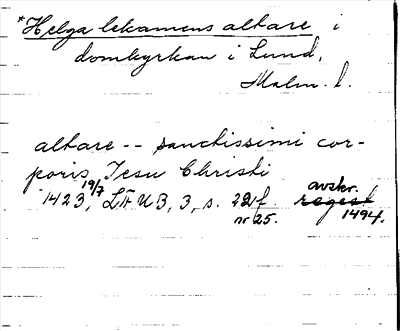 *Helga lekamens altare i
domkyrkan i Lund,
Malm. l.
altare -- sanctissimi cor-
poris Jesu Christi
1423 19/7, LÄUB, 3, s. 221f. avskr.
nr 25. regest 1494.